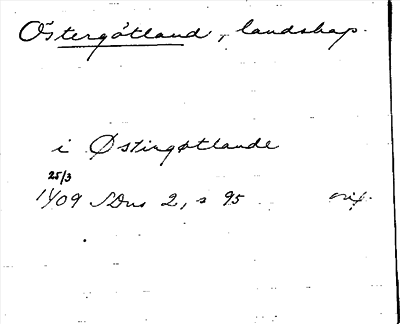 Östergötland, landskap.
i Østirgøtlande
25/3
1409 SDns 2, s 95 orig.